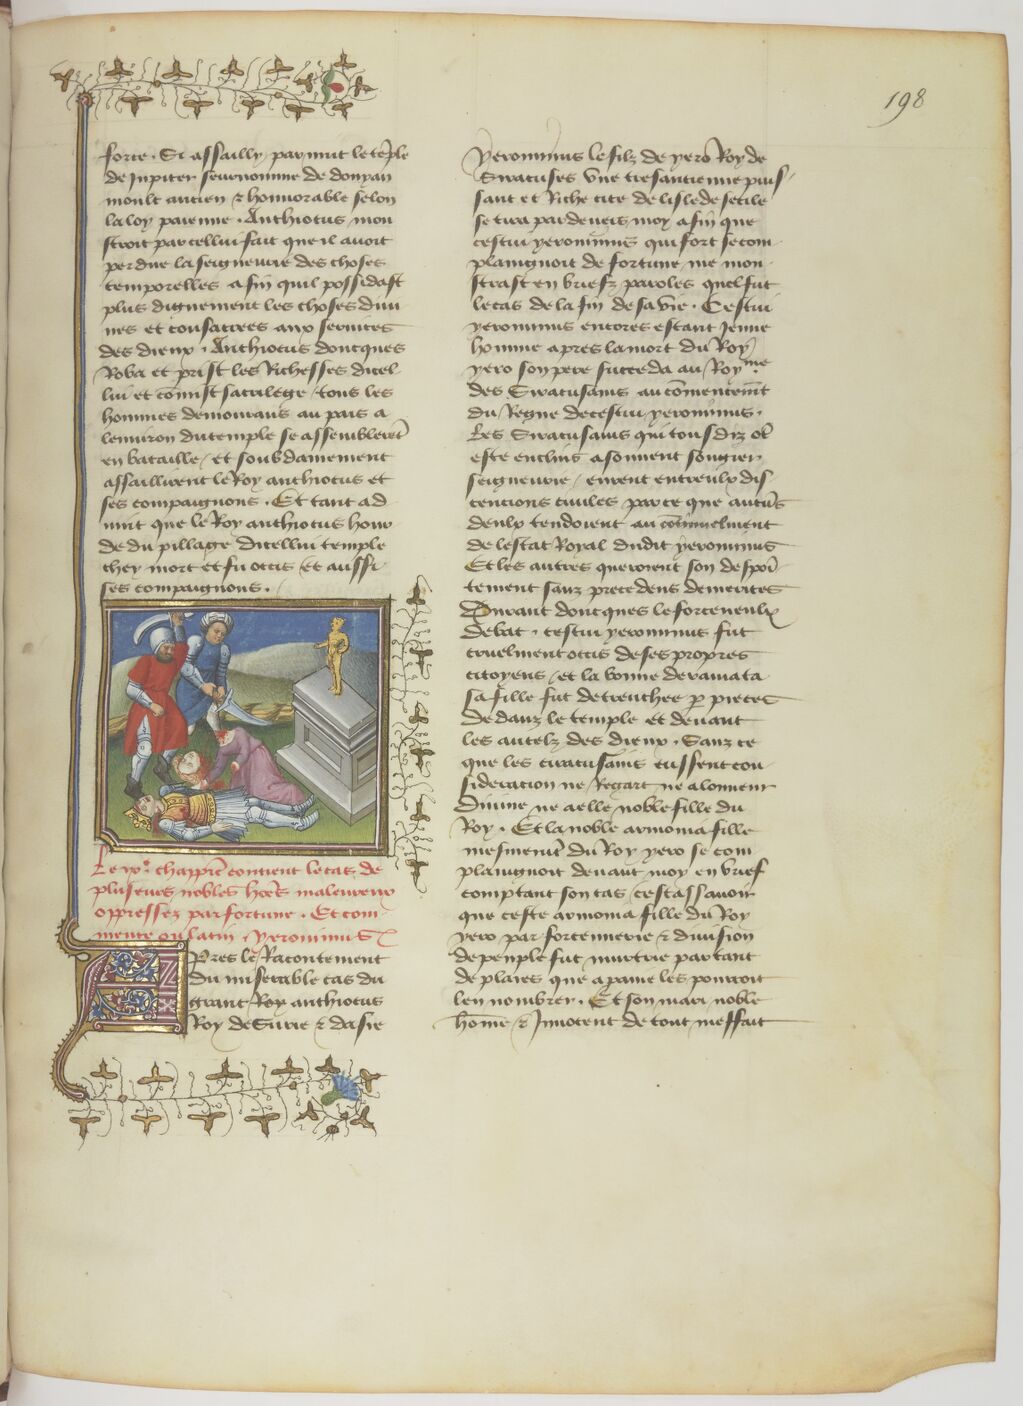 198
forte . Si assailly par nuit le te͂ple
de Jupiter seurnomme de donpan
moult ancien & honnorable selon
la loy paienne . Anthiotus mon
stroit par cellui fait que il avoit
perdue la seigneurie des choses
temporelles afin quil possidast
plus dignement les choses divi
nes et consacrees aux services
des dieux . Anthiotus doncques
Roba et prist les Richesses dicel
lui et co͂mist sacrilege . tous les
hommes demourans au pais a
lenviron du temple se assembleret͂
en bataille / et soubdainement
assaillirent le Roy anthiotus et
ses compaignons . Et tant ad
vint que le Roy anthiotus hour
de du pillage dicellui temple
chey mort et fu occis / et aussi
ses compaignons .
Le xve chappit͂ contient le cas de
pluseurs nobles ho͂es maleureux
oppressez par fortune . Et com-
mence ou latin . yeronimus
APres le Racontement
du miserable cas du
grant Roy anthiotus
Roy de Surie & dasie
yeronimus le filz de yero͂ Roy de
Siracuses vne tresancienne puis-
sant et Riche cite de lisle de secile
se tira par devers moy afin que
cestui yeronimus qui fort se com
plaingnoit de fortune / me mon
strast en briefz paroles quel fut
le cas de la fin de sa vie . Cestui
yeronimus encores estant Jenne
homme apres la mort du Roy
yero son pere succeda au Royme
des Siracusains au co͂mencem͂t
du Regne de cestui yeronimus .
Les Siracusains qui tousdiz ot͂
este enclins a souvent songier
seigneurie / eurent entreulx dis
cencions civiles / par ce que aucu͂s
deulx tendoient au
de lestat Royal dudit yeronimus
Et les autres queroient son despoi͂
tement sanz precedens demerites
Durant doncques le forceneulx
debat . cestui yeronimus fut
cruelment occis de ses propres
citoyens / et la bonne deramata
sa fille fut detrenchee p͂ pieces
dedanz le temple et devant
les autelz des dieux . Sanz ce
que les ciracusains eussent con
sideracion ne Regart / ne a lonneur
divine / ne a elle noble fille du
Roy . Et la noble armonia fille
mesment͂ du Roy yero se com
plaingnoit devant moy en brief
comptant son cas / cestassavoir
que ceste armonia fille du Roy
yero par forcennerie & division
de peuple fut murtrie par tant
de plaies que a paine les pourroit
len nombrer . Et son mari noble
ho͂me & Innocent de tout meffait